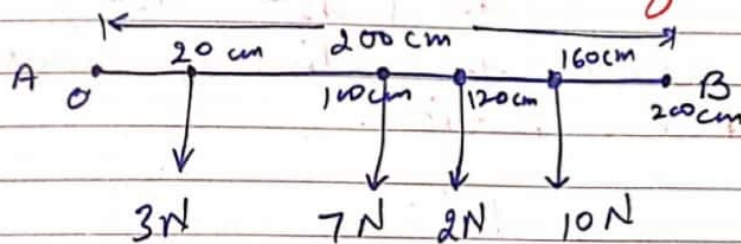 200 cm
20 cm 160cm
A O 100cm 120cm B
200cm
3N 7N 2N 10N